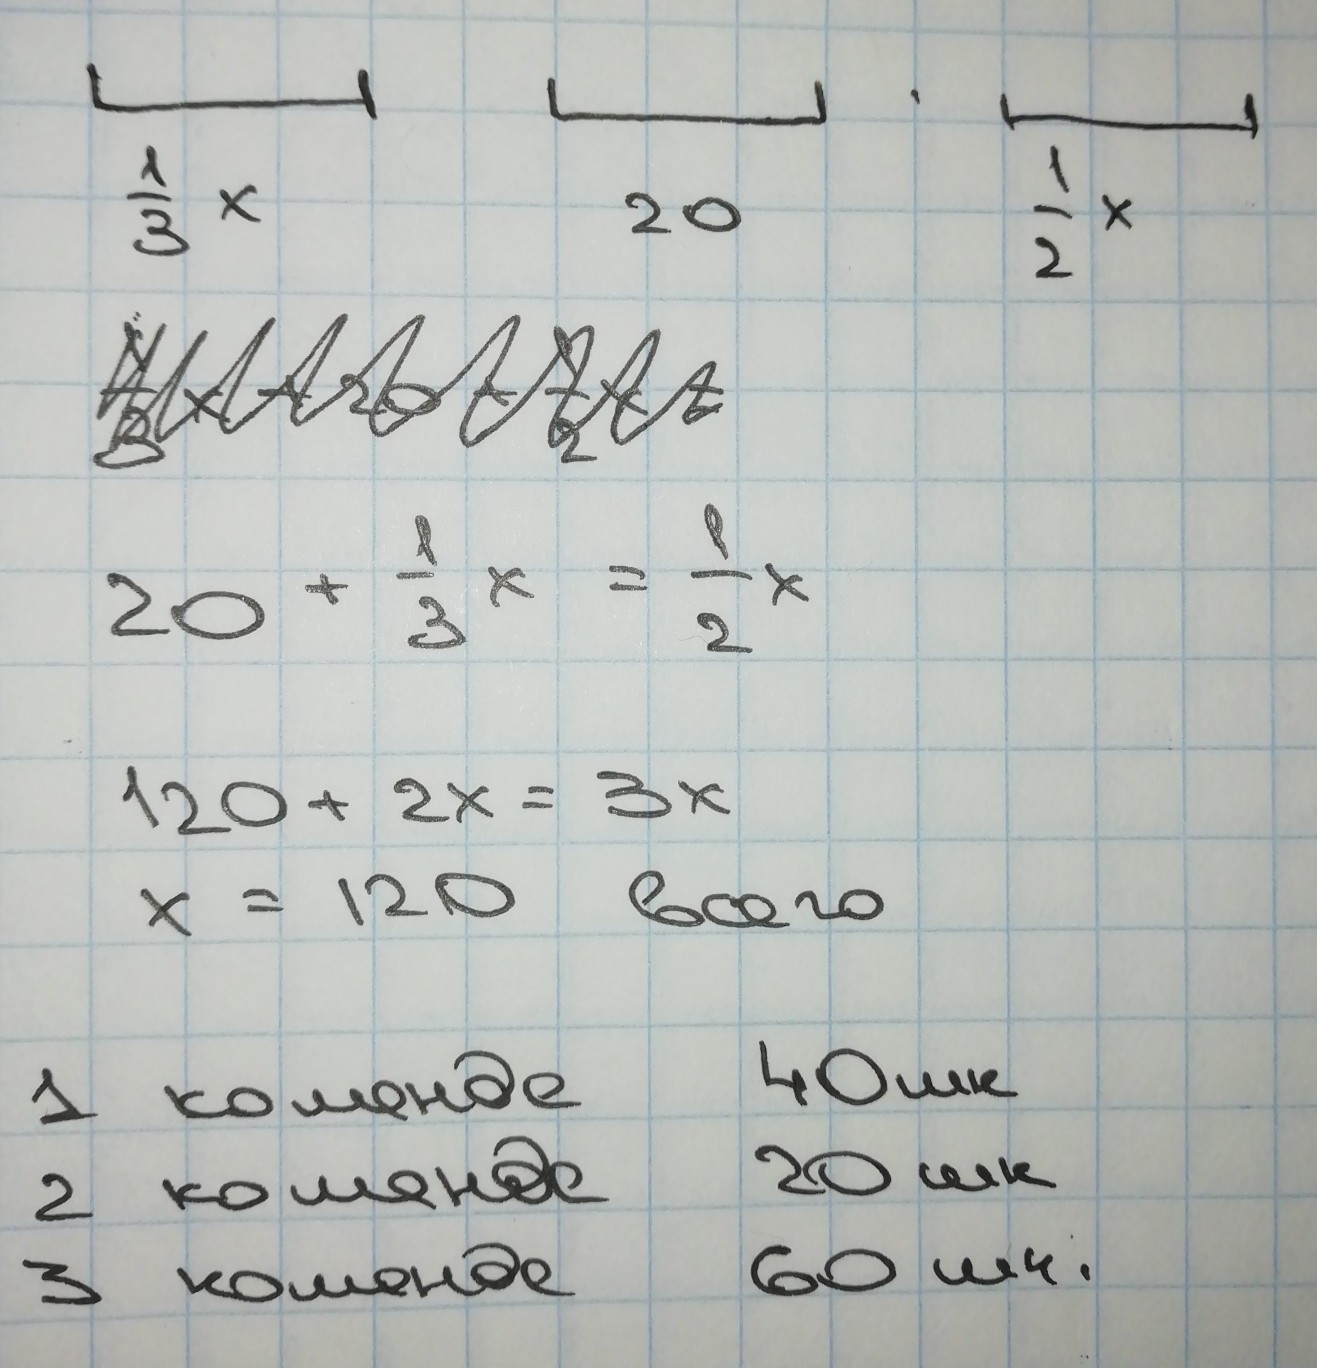 1/3 x 20 1/2 x
20 + 1/3 x = 1/2 x
120 + 2x = 3x
x = 120 всего
1 команда 40 шк
2 команда 20 шк
3 команда 60 шк.